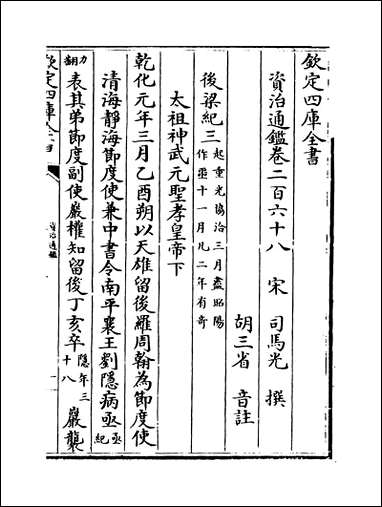 欽定四庫全書
資治通鑑卷二百六十八 宋 司馬光 撰
胡三省 音註
後梁紀三 起重光協洽三月盡昭陽
作噩十一月凡二年有奇
太祖神武元聖孝皇帝下
乾化元年三月乙酉朔以天雄留後羅周翰為節度使
清海靜海節度使兼中書令南平襄王劉隱病亟 亟紀
力翻 表其弟節度副使巖權知留後丁亥卒 隱年三十八 巖襲
欽定四庫全書
資治通鑑